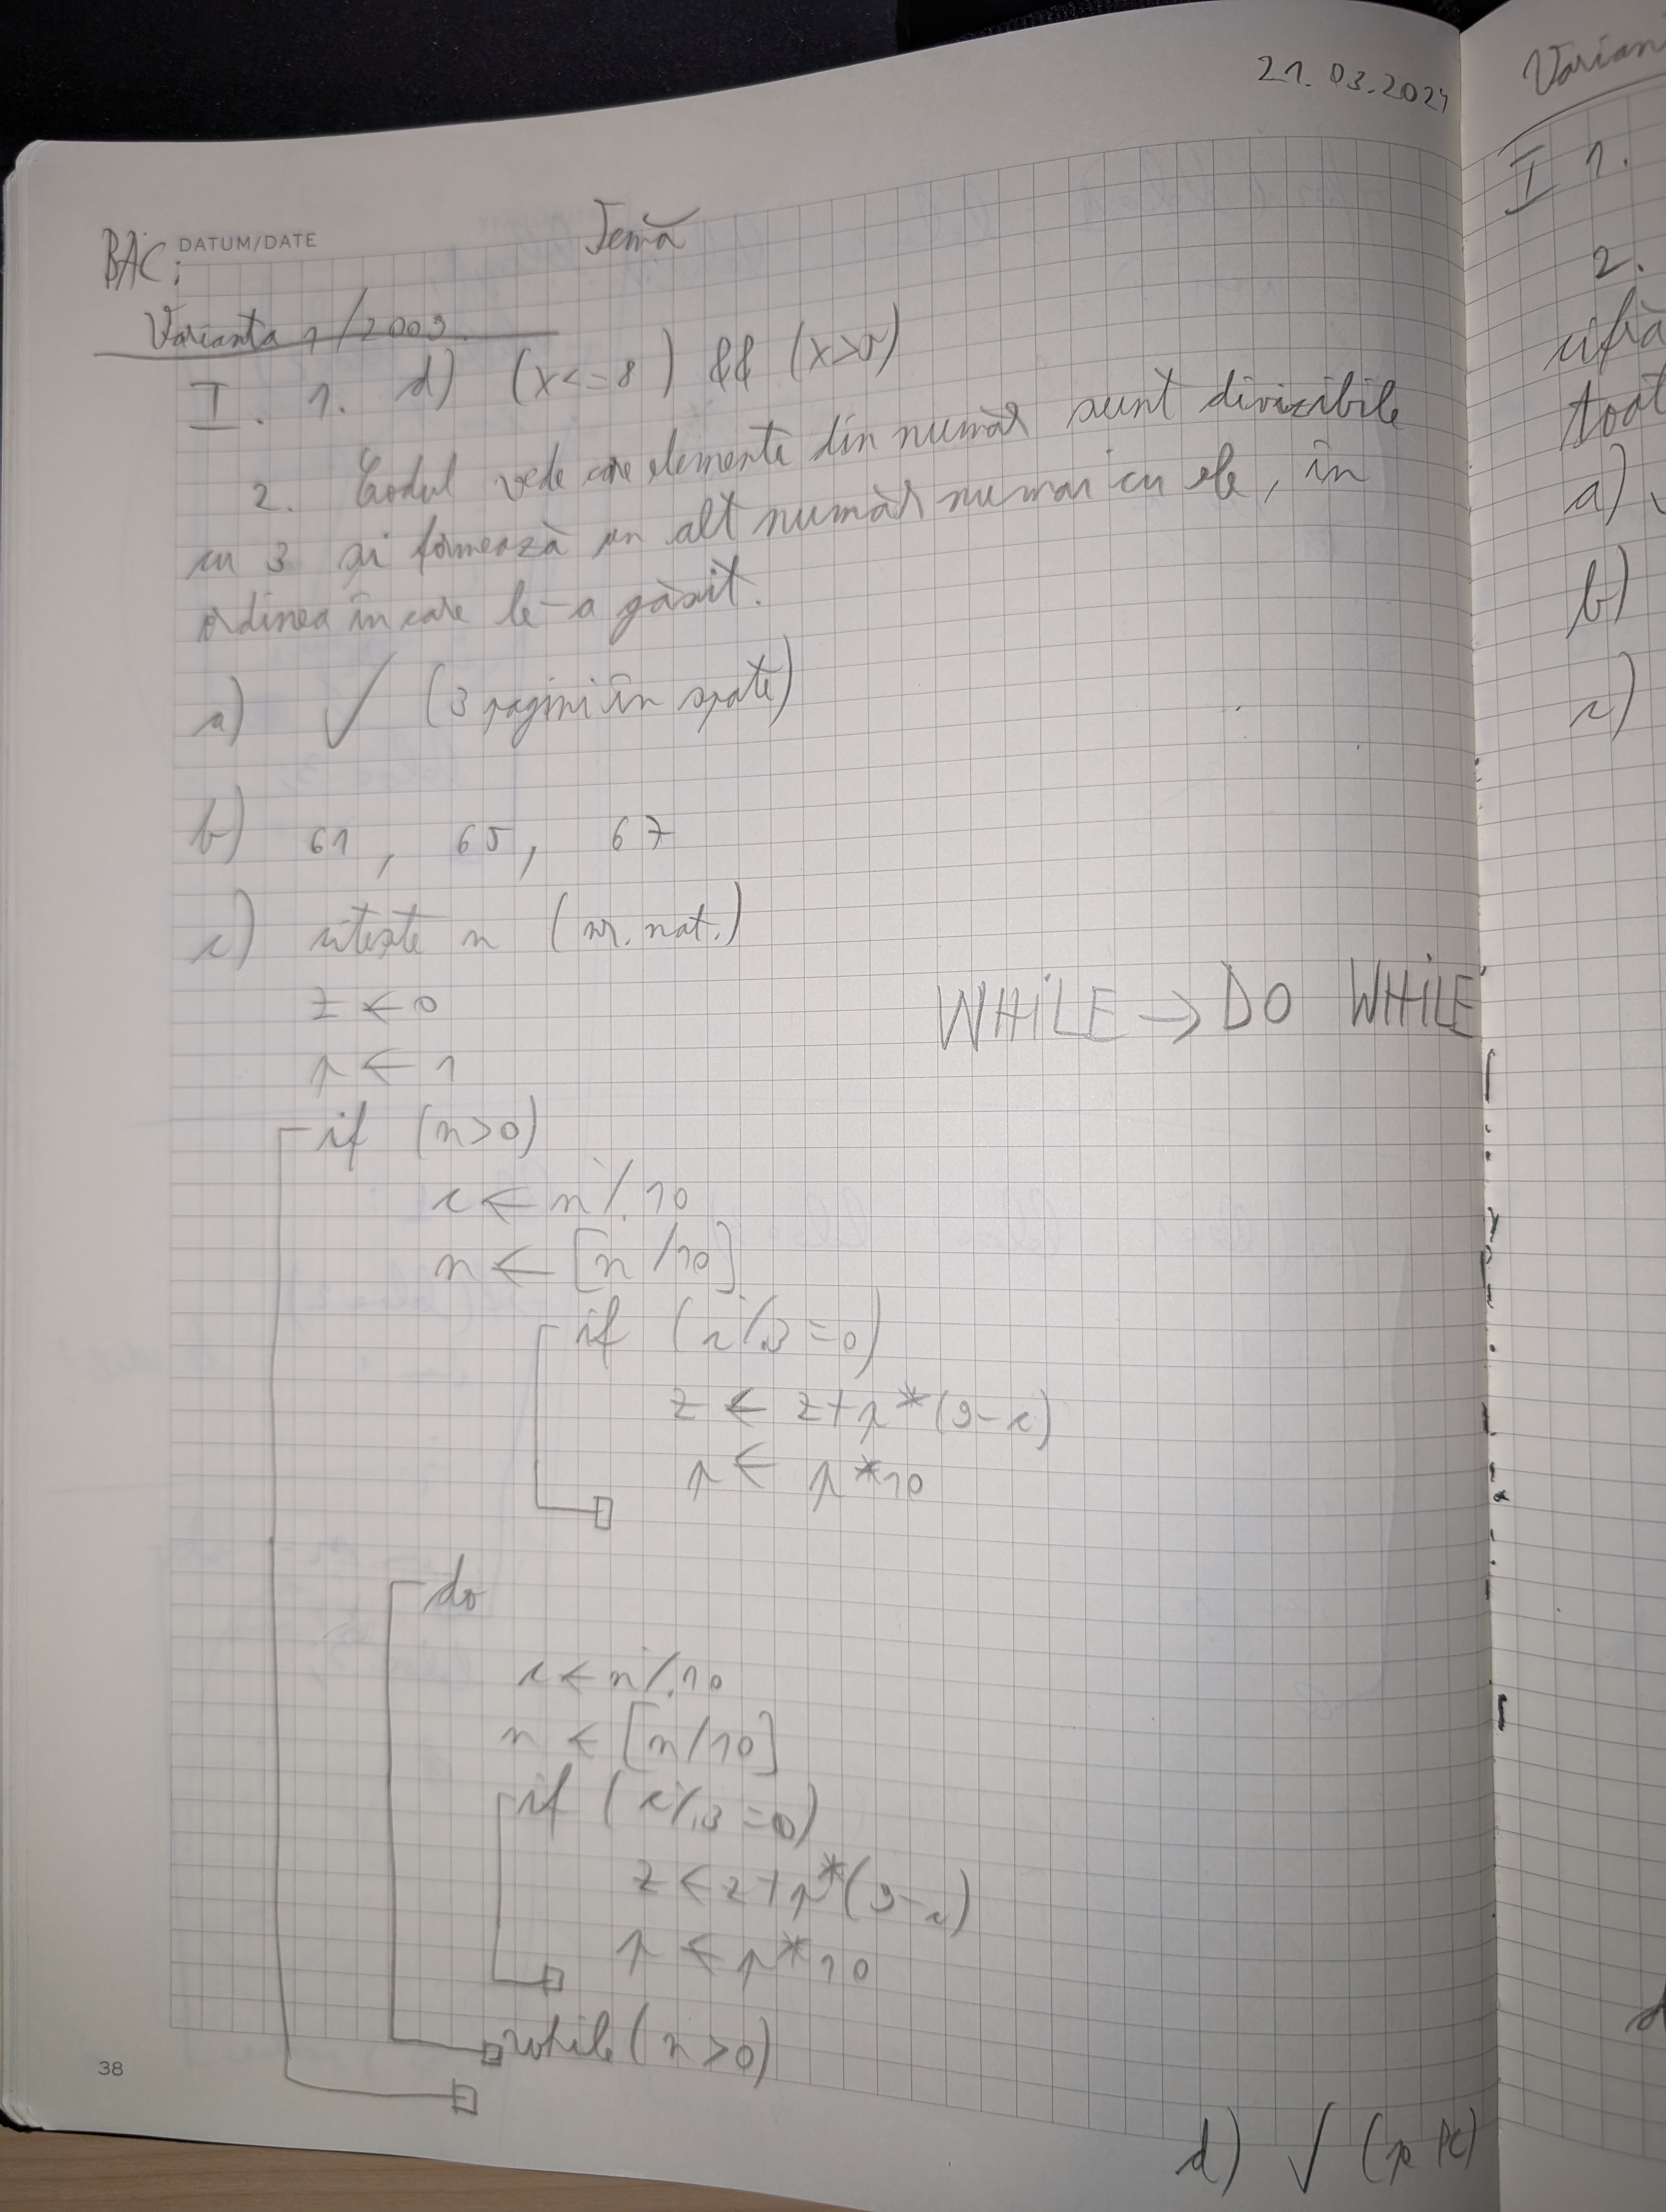 21.03.2024
Temă
BAC:
DATUM/DATE
Varianta 1/2009
I. 1. d) (x<=8) && (x>5)
2. Codul vede care elemente din număr sunt divizibile
cu 3 și formează un alt număr numai cu ele, în
ordinea în care le-a găsit.
a) ✓ (3 pagini în spate)
b) 61, 65, 67
c) citește n (nr. nat.)
z ← 0
p ← 1
WHILE → DO WHILE
if (n>0)
c ← n % 10
n ← [n/10]
if (c%3=0)
z ← z+p*(9-c)
p ← p*10
do
c ← n%10
n ← [n/10]
if (c%3=0)
z ← z+p*(9-c)
p ← p*10
while (n>0)
38
d) ✓ (pe PC)
I 1.
2.
cifră
a)
b)
c)